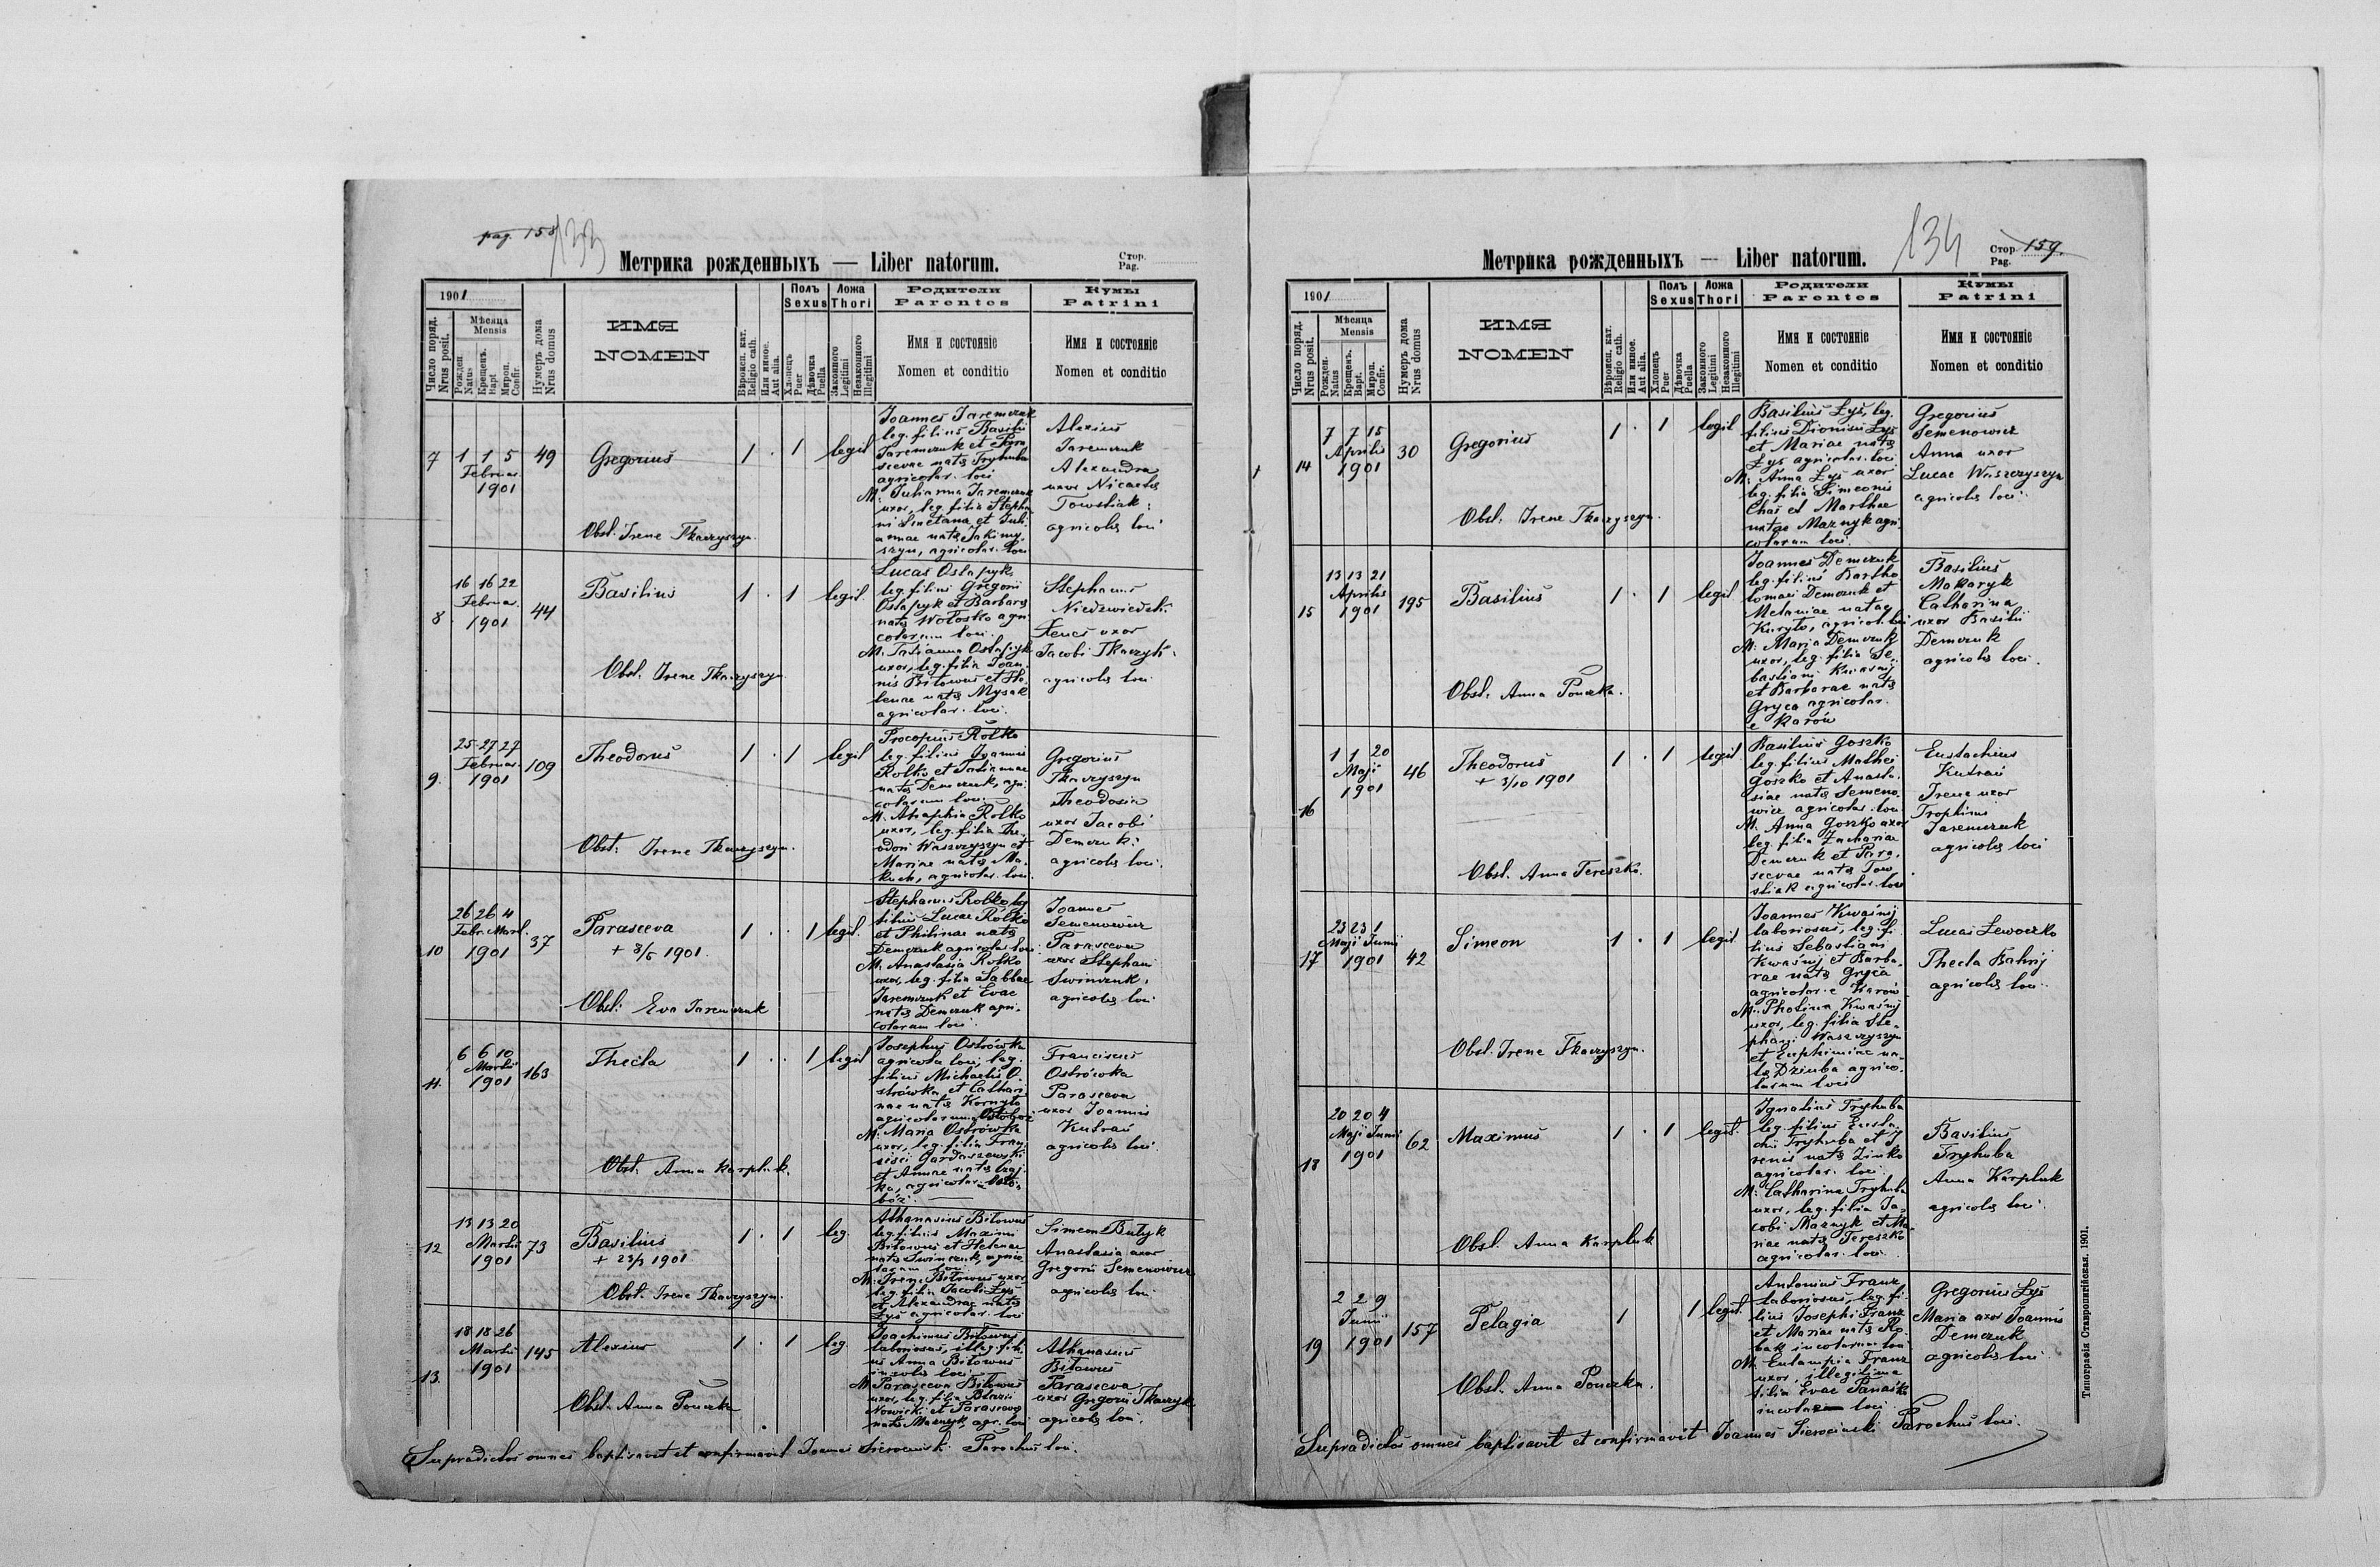 pag. 158
133
Метрика рожденныхъ — Liber natorum.
Стор.
Pag.
1901
Число поряд.
Nrus posit.
Мѣсяца
Mensis
Рожден.
Natus
Крещенъ.
Bapt.
Мироп.
Confir.
Нумеръ дома
Nrus domus
ИМЯ
NOMEN
Вѣроисп. кат.
Religio cath.
Или инное.
Aut alia.
Полъ
Sexus
Хлопецъ
Puer
Дѣвочка
Puella
Ложа
Thori
Законного
Legitimi
Незаконного
Illegitimi
Родители
Parentes
Имя и состоянiе
Nomen et conditio
Кумы
Patrini
Имя и состоянiе
Nomen et conditio
7
1 1 5
Februar.
1901
49
Gregorius
1 · 1
legit
Obst. Irene Tkaczyszyn.
Joannes Jaremczuk
leg. filius Basilii
Jaremczuk et Para
scevae natae Tryhuba
agricolar. loci
M. Julianna Jaremczuk
uxor, leg. filia Stepha
ni Smetana et Juli
annae natae Jakimy
szyn, agricolar. loci
Alexius
Jaremczuk
Alexandra
uxor Nicaetae
Towstiak
agricolae loci
8
16 16 22
Februar.
1901
44
Basilius
1 · 1
legit.
Obst. Irene Tkaczyszyn
Lucas Ostapyk
leg. filius Gregorii
Ostapyk et Barbarae
natae Wołosko agri
colarum loci.
M. Tatianna Ostapyk
uxor, leg. filia Joan
nis Bitowus et He
lenae natae Mysak
agricolar. loci.
Stephanus
Niedzwiedski
Xenes uxor
Jacobi Tkaczyk
agricolae loci
9.
25 27 27
Februar.
1901
109
Theodorus
1 · 1
legit
Obst. Irene Tkaczyszyn.
Procopius Rołko
leg. filius Joannis
Rołko et Tatiannae
natae Demczuk, agri
colarum loci
M. Ahaphia Rołko
uxor, leg. filia The
odori Waszczyszyn et
Mariae natae Ma
kuch, agricolar. loci.
Gregorius
Tkaczyszyn
Theodosia
uxor Jacobi
Demczuk
agricolae loci.
10
26 26 4
Febr. Mart.
1901
37
Parasceva
+ 8/5 1901.
1 · · 1
legit.
Obst. Eva Jaremczuk
Stephanus Rołko leg
filius Lucae Rołko
et Philinae natae
Demczuk agricolar. loci
M. Anastasia Rołko
uxor, leg. filia Sabbae
Jaremczuk et Evae
natae Demczuk agri
colarum loci.
Joannes
Semenowicz
Parasceva
uxor Stephani
Swinczuk,
agricolae loci
11.
6 6 10
Martii
1901
163
Thecla
1 · · 1
legit
Obst. Anna Karpluk.
Josephus Ostrówka
agricola loci, leg.
filius Michaelis O
strówka et Cathari
nae natae Kornyło
agricolarum
M. Maria Ostrówka
uxor, leg. filia Fran
cisci Gardaszewski
et Annae natae
agricolar.
Franciscus
Ostrówka
Parasceva
uxor Joannis
Kutrań
agricolae loci.
12
13 13 20
Martii
1901
73
Basilius
+ 23/3 1901
1 · 1
leg.
Obst. Irene Tkaczyszyn.
Athanasius Bitowus
leg. filius Maximi
Bitowus et Helenae
natae Swinczuk, agrico
larum loci
M. Irene Bitowus uxor
leg. filia Jacobi Łyś
et Alexandrae natae
Łyś agricolar. loci
Simeon Butyk
Anastasia uxor
Gregorii Semenowicz
agricolae loci
13.
18 18 26
Martii
1901
145
Alexius
1 · 1
leg.
Obst. Anna Ponczka
Joachimus Bitowus
laboriosus, illeg. fili
us Anna Bitowus
incolae loci
M. Parasceva Bitowus
uxor, leg. filia Blasii
Nowicki et Parascevae
natae Maznyk, agr. loci
Athanasius
Bitowus
Parasceva
uxor Gregorii Tkaczyk
agricolae loci.
Supradictos omnes baptisavit et confirmavit Joannes Sierocinski Parochus loci.
134
Метрика рожденныхъ — Liber natorum.
Стор. 159.
Pag.
1901
Число поряд.
Nrus posit.
Мѣсяца
Mensis
Рожден.
Natus
Крещенъ.
Bapt.
Мироп.
Confir.
Нумеръ дома
Nrus domus
ИМЯ
NOMEN
Вѣроисп. кат.
Religio cath.
Или инное.
Aut alia.
Полъ
Sexus
Хлопецъ
Puer
Дѣвочка
Puella
Ложа
Thori
Законного
Legitimi
Незаконного
Illegitimi
Родители
Parentes
Имя и состоянiе
Nomen et conditio
Кумы
Patrini
Имя и состоянiе
Nomen et conditio
14
7 7 15
Aprilis
1901
30
Gregorius
1 · 1
legit
Obst. Irene Tkaczyszyn.
Basilius Łyś, leg.
filius Dionisii Łyś
et Mariae natae
Łyś agricolar. loci
M. Anna Łyś uxor
leg. filia Simeonis
Chas et Marthae
natae Maznyk agri
colarum loci.
Gregorius
Semenowicz
Anna uxor
Lucae Waszczyszyn
agricolae loci.
15
13 13 21
Aprilis
1901
195
Basilius
1 · 1
legit
Obst. Anna Ponczka.
Joannes Demczuk
leg. filius Bartho
lomaei Demczuk et
Melaniae natae
Kuryło, agricol. loci
M. Maria Demczuk
uxor, leg. filia Se
bastiani Kwasnij
et Barbarae natae
Gryca agricolar.
e Karów
Basilius
Makaryk
Catharina
uxor Basilii
Demczuk
agricolae loci.
16
1 1 20
Maji
1901
46
Theodorus
+ 3/10 1901
1 · 1
legit.
Obst. Anna Tereszko.
Basilius Goszko
leg. filius Mathei
Goszko et Anasta
siae natae Semeno
wicz agricolar. loci
M. Anna Goszko uxor
leg. filia Zachariae
Demczuk et Para
scevae natae Tow
stiak agricolar. loci
Eustachius
Kutrań
Irene uxor
Trophimi
Jaremczuk
agricolae loci
17
23 23 1
Maji Junii
1901
42
Simeon
1 · 1
legit.
Obst. Irene Tkaczyszyn.
Joannes Kwaśnij
laboriosus, leg. fi
lius Sebastiani
Kwaśnij et Barba
rae natae Gryca
agricolar. e Karów
M. Photina Kwaśnij
uxor, leg. filia Ste
phani Waszczyszyn
et Euphimiae na
tae Dziuba agrico
larum loci
Lucas Lewoczko
Thecla Bahrij
agricolae loci.
18
20 20 4
Maji Junii
1901
62
Maximus
1 · 1
legit.
Obst. Anna Karpluk
Ignatius Tryhuba
leg. filius Eusta
chii Tryhuba et I
renis natae Zinko
agricolar. loci
M. Catharina Tryhuba
uxor, leg. filia Ja
cobi Maznyk et Ma
riae natae Tereszko
agricolar. loci
Basilius
Tryhuba
Anna Karpluk
agricolae loci.
19
2 2 9
Junii
1901
157
Pelagia
1 1
legit.
Obst. Anna Ponczka.
Antonius Franz
laboriosus, leg. fi
lius Josephi Franz
et Mariae natae Ro
bak incolarum loci
M. Eulampia Franz
uxor, illegitima
filia Evae Panaśko
incolae loci
Gregorius Łyś
Maria uxor Joannis
Demczuk
agricolae loci
Supradictos omnes baptisavit et confirmavit Joannes Sierocinski Parochus loci.
Типографія Ставропигійская. 1901.